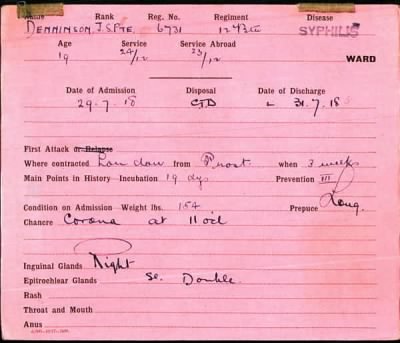 Name Rank Reg. No. Regiment Disease
DENNINSON, J.S. PTE. 6731 SYPHILIS
Age Service Service Abroad
19 24/12 23/12 WARD
Date of Admission Disposal Date of Discharge
29.7.18 31.7.18
First Attack or Relapse
Where contracted London from Prost when 3 weeks
Main Points in History Incubation 19 dys Prevention III
Condition on Admission Weight lbs. 154 Prepuce Long.
Chancre Corona at 11 o'cl
Inguinal Glands Right
Epitrochlear Glands Se. Double.
Rash
Throat and Mouth
Anus